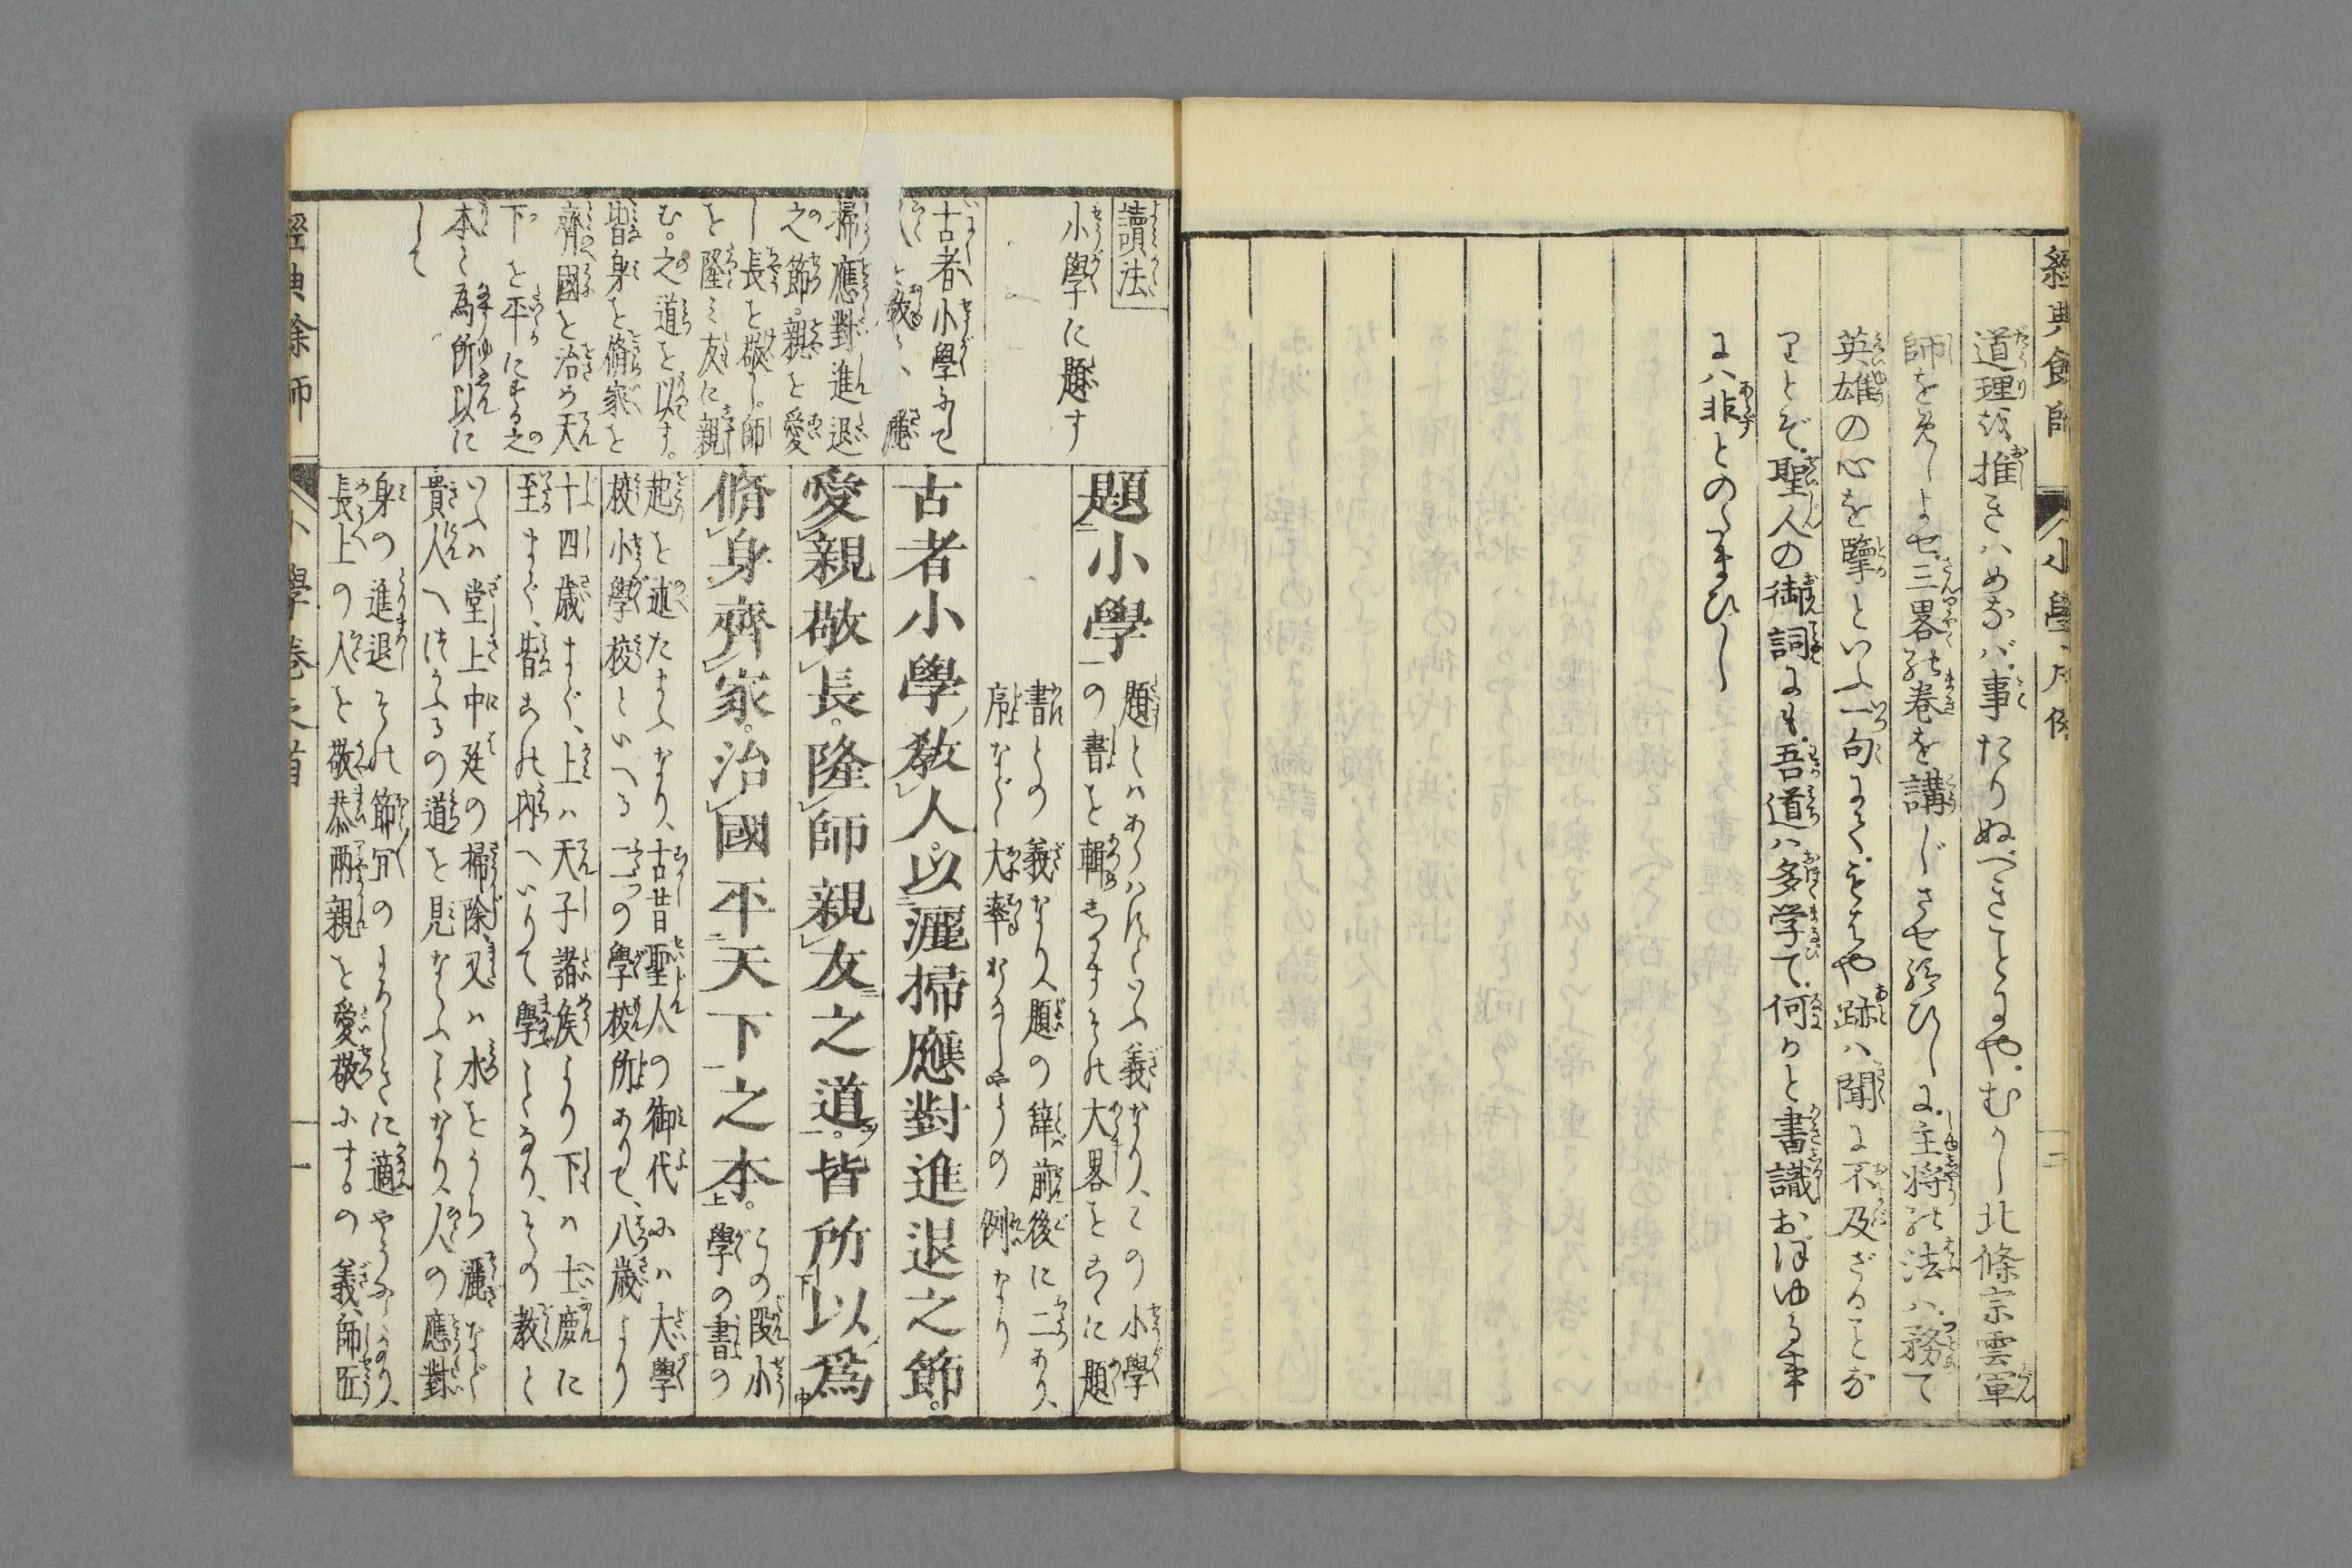 經典餘師
小學
道理を推きはめなば事たりぬべきことにや。むかし北條宗雲軍
師をめしよせ三畧の巻を講じさせ給ひしに主将の法は務て
英雄の心を擥といふ一句にて。もはや跡は聞に不及ざることな
りとぞ。聖人の御詞にも。吾道は多学て。何かと書識おぼゆる事
には非とのたまひし
讀法
小學に題す
古者小學にして
掃應對進退
之節。親を愛
し長を敬し。師
を隆み友に親
む。之道を以す。
皆身を脩家を
齊國を治め天
下を平にする之
本と為所以に
して
題小學
題とはあらはすといふ義なり、この小學
の書を輯めしるすその大畧をこゝに題
書との義なり又題の辞前後に二あり、
序など大率おなじやうの例なり
古者小學教人。以灑掃應對進退之節。
愛親敬長。隆師親友之道。皆所以爲
脩身齊家。治國平天下之本。
この段小
學の書の
起を述たまふなり、古昔聖人の御代には大學
校小學校といへる二つの學校所ありて、八歳より
十四歳まで、上は天子諸侯より下は士庶に
至まで、皆この内へいりて學ことなり、その教と
いふは堂上中廷の掃除、又は水をうち灑など
貴人へつかふるの道を見ならふことなり、人の應對
身の進退その節々のよろしきに適やうになり、
長上の人を敬恭両親を愛敬にする。の義、師匠
經典餘師
小學卷之首
一